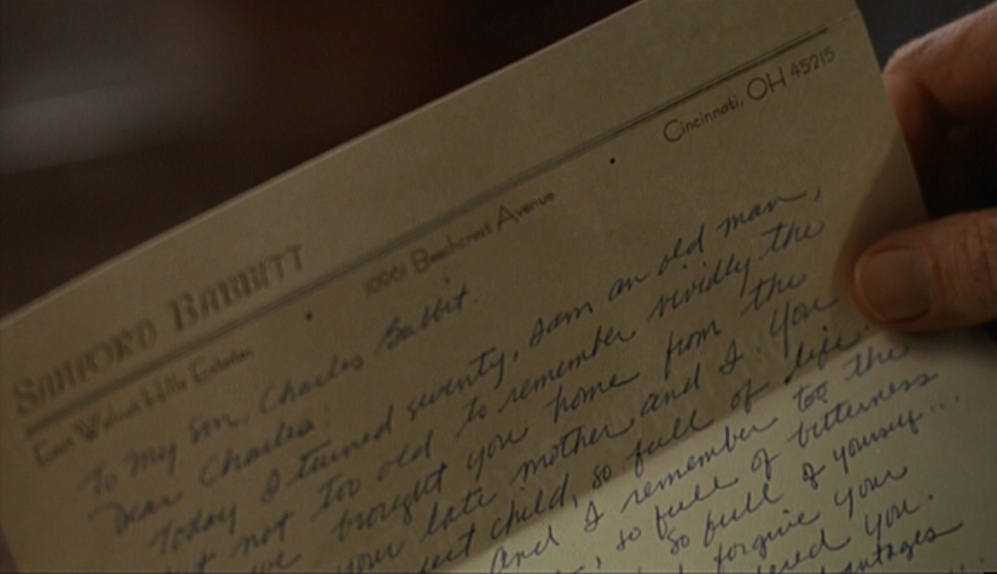 SANFORD BABBITT
East Walnut Hills Estates • 10961 Beechcrest Avenue • Cincinnati, OH 45215
To my son, Charles Babbit.
Dear Charles:
Today I turned seventy. I am an old man,
but not too old to remember vividly the
we brought you home from the
your late mother and I. You
child, so full of life.
And I remember too the
, so full of bitterness
so full of yourself...
forgive your
you.